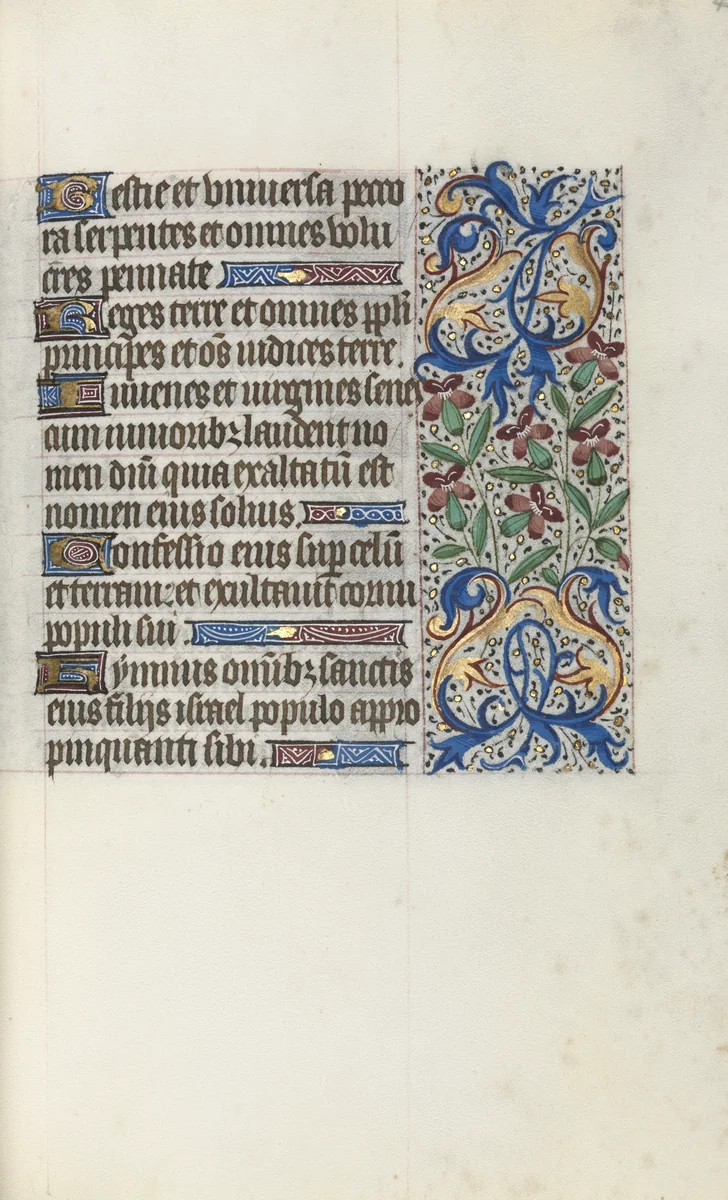 Bestie et vniuersa peco
ra serpentes et omnes volu
cres pennate
Reges terre et omnes ppli
principes et oĩs iudices terre.
Iuuenes et uirgines senes
cum iunioribꝫ laudent no
men dñi quia exaltatũ est
nomen eius solius.
Confessio eius sup celũ
et terram: et exultauit cornu
populi sui.
Hymnus omĩbꝫ sanctis
eius filijs israel populo appro
pinquanti sibi.